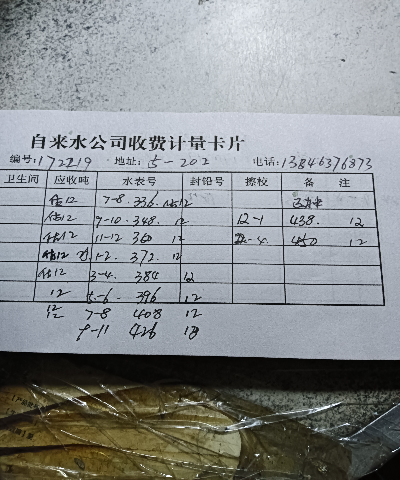 自来水公司收费计量卡片
编号:172219 地址:5-202 电话:13846376873
卫生间 应收吨 水表号 封铅号 擦校 备 注
估12 7-8. 336. 估12
估12 9-10. 348. 12 12-1 438. 12
估12 11-12 360 12 2-4. 450 12
估12 1-2. 372. 12
估12 3-4. 384 12
12 5-6. 396 12
12 7-8 408 12
9-11 426 18